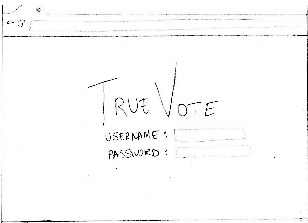 TRUE VOTE
USERNAME:
PASSWORD: